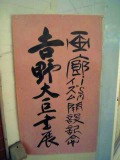 画廊イズム開設記念
吉野大巨士展